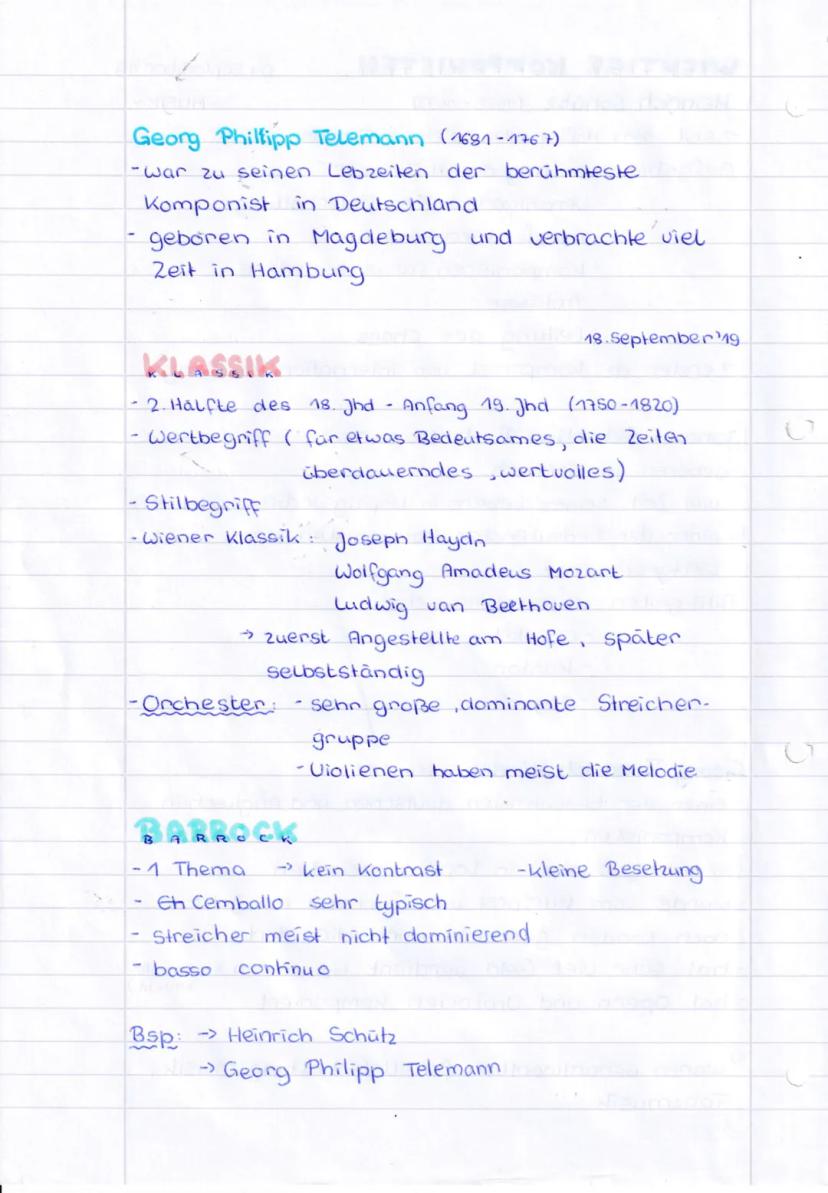 Georg Phillipp Telemann (1681-1767)
- war zu seinen Lebzeiten der berühmteste
Komponist in Deutschland
- geboren in Magdeburg und verbrachte viel
Zeit in Hamburg
18. September '19
KLASSIK
KLASSIK
- 2. Hälfte des 18. Jhd - Anfang 19. Jhd (1750-1820)
- Wertbegriff ( für etwas Bedeutsames, die Zeiten
überdauerndes, wertvolles)
- Stilbegriff
- Wiener Klassik: Joseph Haydn
Wolfgang Amadeus Mozart
Ludwig van Beethoven
→ zuerst Angestellte am Hofe, später
selbstständig
- Orchester: - sehr große, dominante Streicher-
gruppe
- Violienen haben meist die Melodie
BARROCK
BARROCK
- 1 Thema → kein Kontrast - kleine Besetzung
- Cemballo sehr typisch
- Streicher meist nicht dominierend
- basso continuo
Bsp: → Heinrich Schütz
→ Georg Philipp Telemann